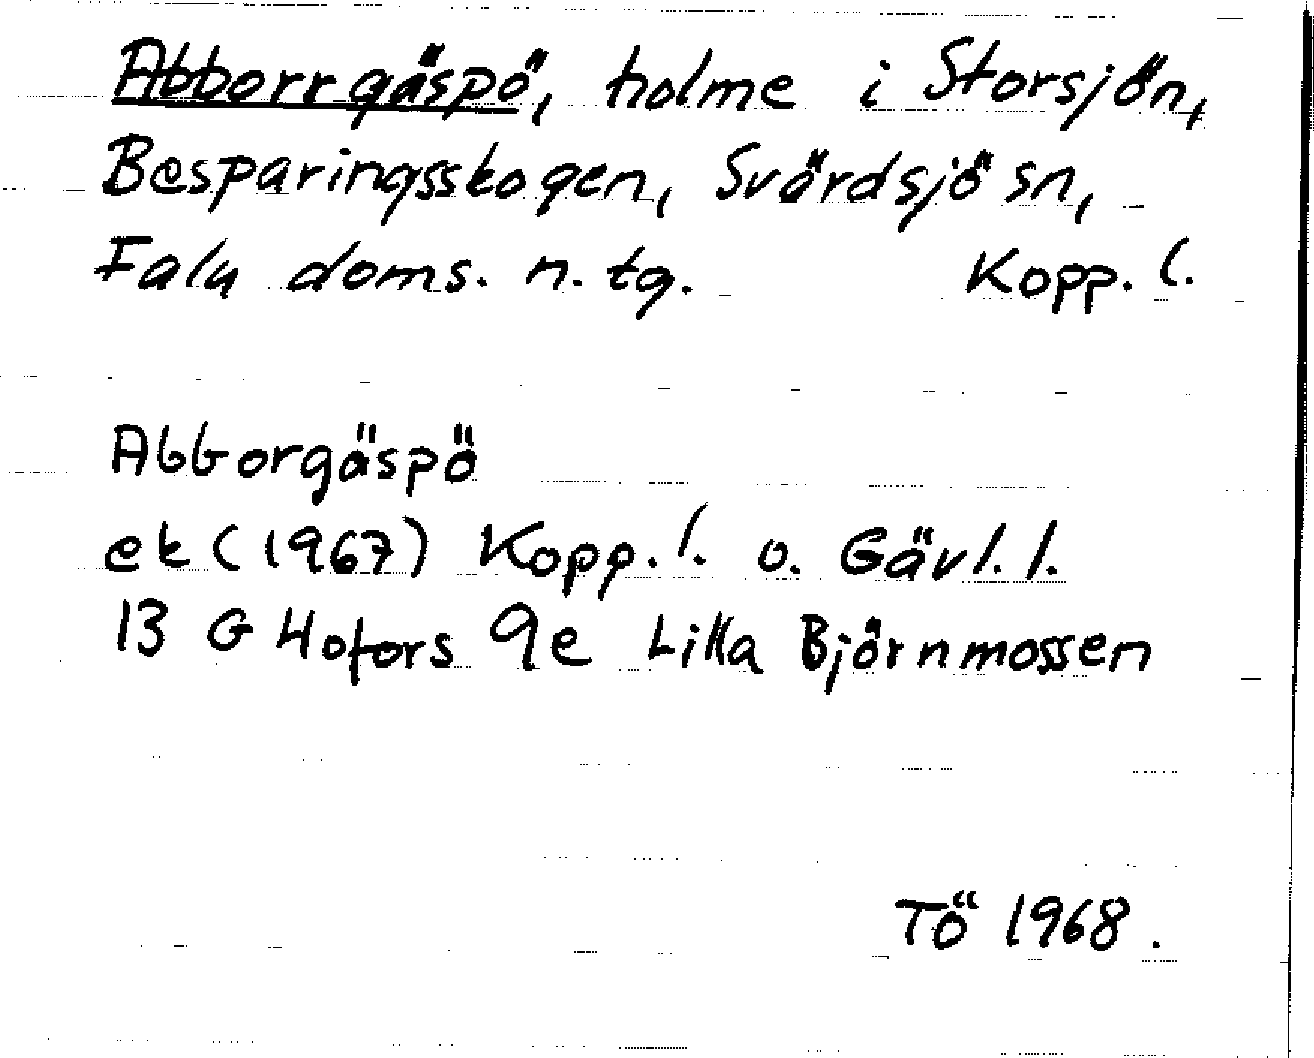 Abborrgäspö, holme i Storsjön,
Besparingsskogen, Svärdsjö sn,
Falu doms. n. tg. Kopp. l.
Abborgäspö
ek (1967) Kopp. l. o. Gävl. l.
13 G Hofors 9e Lilla Björnmossen
TÖ 1968.